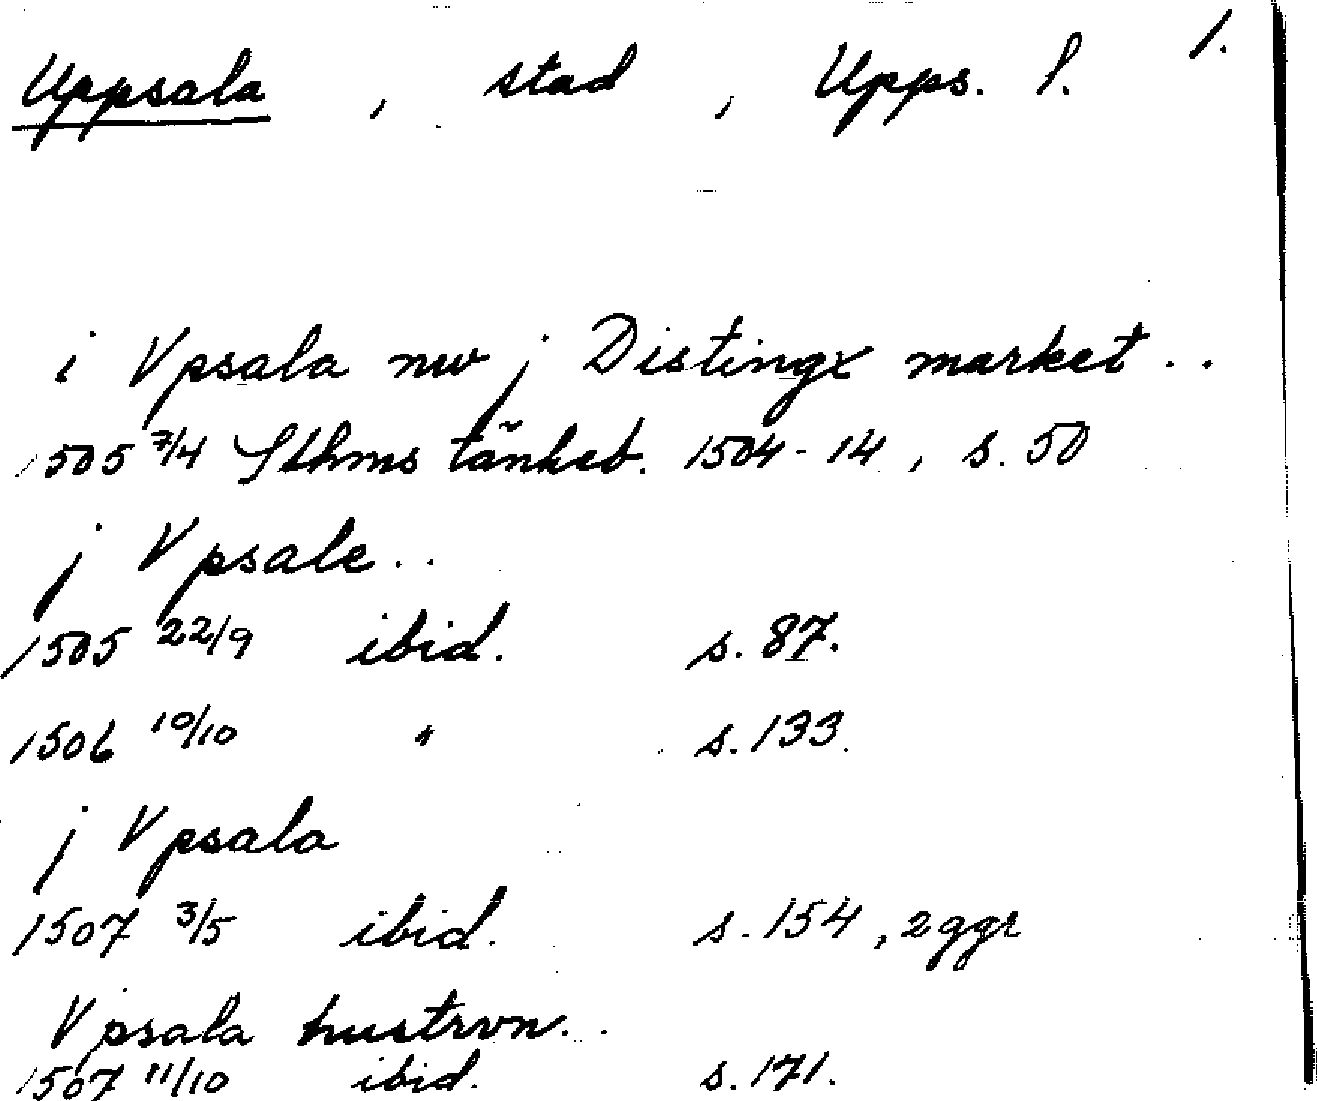 1.
Uppsala, stad, Upps. l.
i Vpsala nw j Distingx market..
1505 7/4 Sthms tänkeb. 1504-14, s. 50
j Vpsale..
1505 22/9 ibid. s. 87.
1506 10/10 " s. 133.
j Vpsala
1507 3/5 ibid. s. 154, 2 ggr
Vpsala hustrvn..
1507 11/10 ibid. s. 171.